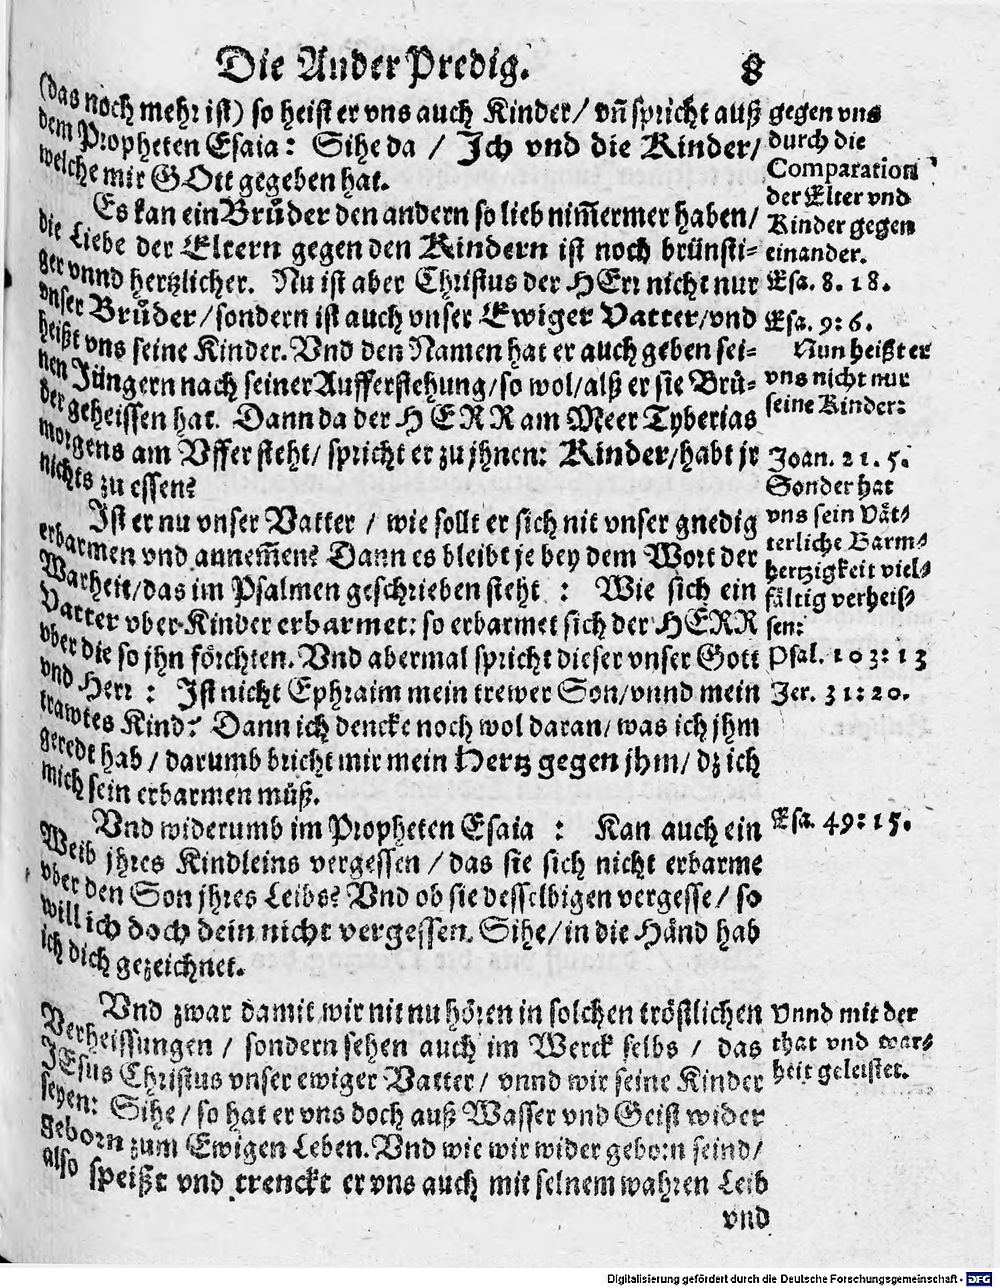 Die Ander Predig. 8
(das noch mehr ist) so heist er vns auch Kinder/ vñ spricht auß
dem Propheten Esaia: Sihe da / Ich vnd die Kinder/
welche mir GOtt gegeben hat.
Es kan ein Brůder den andern so lieb nim̃ermer haben/
die Liebe der Eltern gegen den Kindern ist noch brünsti-
ger vnnd hertzlicher. Nu ist aber Christus der HErr nicht nur
vnser Brůder/sondern ist auch vnser Ewiger Vatter/vnd
heißt vns seine Kinder. Vnd den Namen hat er auch geben sei-
nen Jüngern nach seiner Aufferstehung/so wol/alß er sie Brü-
der geheissen hat. Dann da der HERR am Meer Tyberias
morgens am Vffer steht/ spricht er zu jhnen: Kinder/habt jr
nichts zu essen?
Ist er nu vnser Vatter / wie sollt er sich nit vnser gnedig
erbarmen vnd annem̃en? Dann es bleibt je bey dem Wort der
Warheit/das im Psalmen geschrieben steht : Wie sich ein
Vatter vber Kinder erbarmet: so erbarmet sich der HERR
vber die so jhn förchten. Vnd abermal spricht dieser vnser Gott
vnd Herr : Ist nicht Ephraim mein trewer Son/vnnd mein
trawtes Kind? Dann ich dencke noch wol daran/ was ich jhm
geredt hab / darumb bricht mir mein Hertz gegen jhm/ dz ich
mich sein erbarmen müß.
Vnd widerumb im Propheten Esaia : Kan auch ein
Weib jhres Kindleins vergessen / das sie sich nicht erbarme
vber den Son jhres Leibs? Vnd ob sie desselbigen vergesse/ so
will ich doch dein nicht vergessen. Sihe/in die Händ hab
ich dich gezeichnet.
Vnd zwar damit wir nit nu hören in solchen tröstlichen
Verheissungen / sondern sehen auch im Werck selbs / das
JEsus Christus vnser ewiger Vatter/ vnnd wir seine Kinder
seyen: Sihe/ so hat er vns doch auß Wasser vnd Geist wider
geborn zum Ewigen Leben. Vnd wie wir wider geborn seind/
also speißt vnd trenckt er vns auch mit seinem wahren Leib
vnd
gegen vns
durch die
Comparation
der Elter vnd
Kinder gegen
einander.
Esa. 8. 18.
Esa. 9: 6.
Nun heißt er
vns nicht nur
seine Kinder:
Joan. 21. 5.
Sonder hat
vns sein Vät-
terliche Barm-
hertzigkeit viel-
fältig verheis-
sen:
Psal. 103: 13
Jer. 31: 20.
Esa. 49: 15.
Vnnd mit der
that vnd war-
heit geleistet.
Digitalisierung gefördert durch die Deutsche Forschungsgemeinschaft - DFG